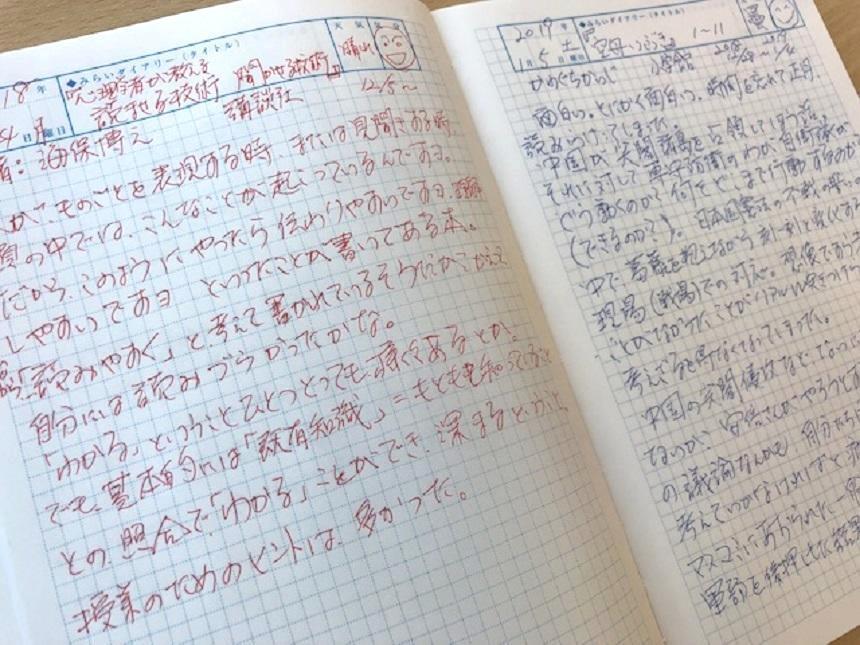 18 年
◆みらいダイアリー(タイトル)
天気
『心理学者が教える
読ませる技術 聞かせる技術』
晴れ
講談社
12/5〜
日 曜日
者:海保博之
ものごとを表現する時、または見聞きする時、
の中では、こんなことが起こっているんですヨ。
だから、このようにやったら伝わりやすいですヨ、理解
しやすいですヨ といったことが書いてある本。
「読みやすく」と考えて書かれているそうだが
自分には読みづらかったかな。
「わかる」ということひとつとっても、様々あるとか。
でも、基本的には「既有知識」=もともと知っていること
との照合で「わかる」ことができ、深まるということ
授業のためのヒントは、多かった。
2019 年
1月 5日 土曜日
◆みらいダイアリー(タイトル)
『空母いぶき』 1〜11
かわぐちかいじ 小学館
面白い。とにかく面白い。時間を忘れて正月、
読みふけってしまった。
中国が尖閣諸島を占領してしまう話。
それに対して専守防衛のわが自衛隊が
どう動くのか?何をどこまで行動するのか
(できるのか?)。日本国憲法の不戦の誓いの
中で、葛藤を抱えながら刻一刻と変化する
現場(戦場)での対応。想像であっ
ことがなかったことがリアルに
考えざるを得なくなってしまった。
中国の尖閣侵攻など、なっ
ないのか、安倍さんがやろうと
の議論なんかも 自分たち
考えていかなければと
マスコミにあおられた一
軍部を後押しした